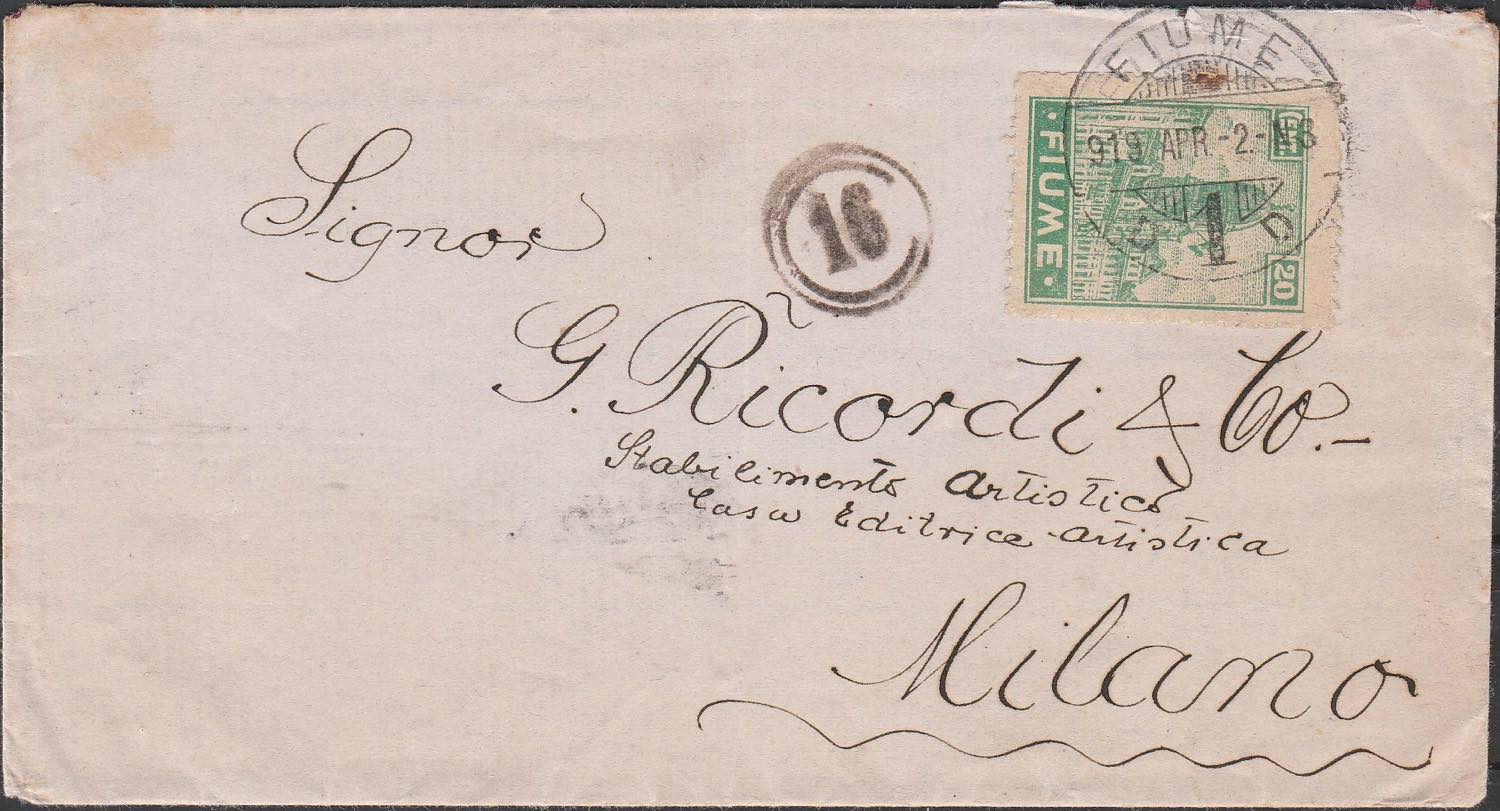 FIUME
919 APR.-2.-N8
D 1 D
· FIUME ·
CENT.
20
16
Signor
G. Ricordi & Co.-
Stabilimento artistico
Casa Editrice-artistica
Milano